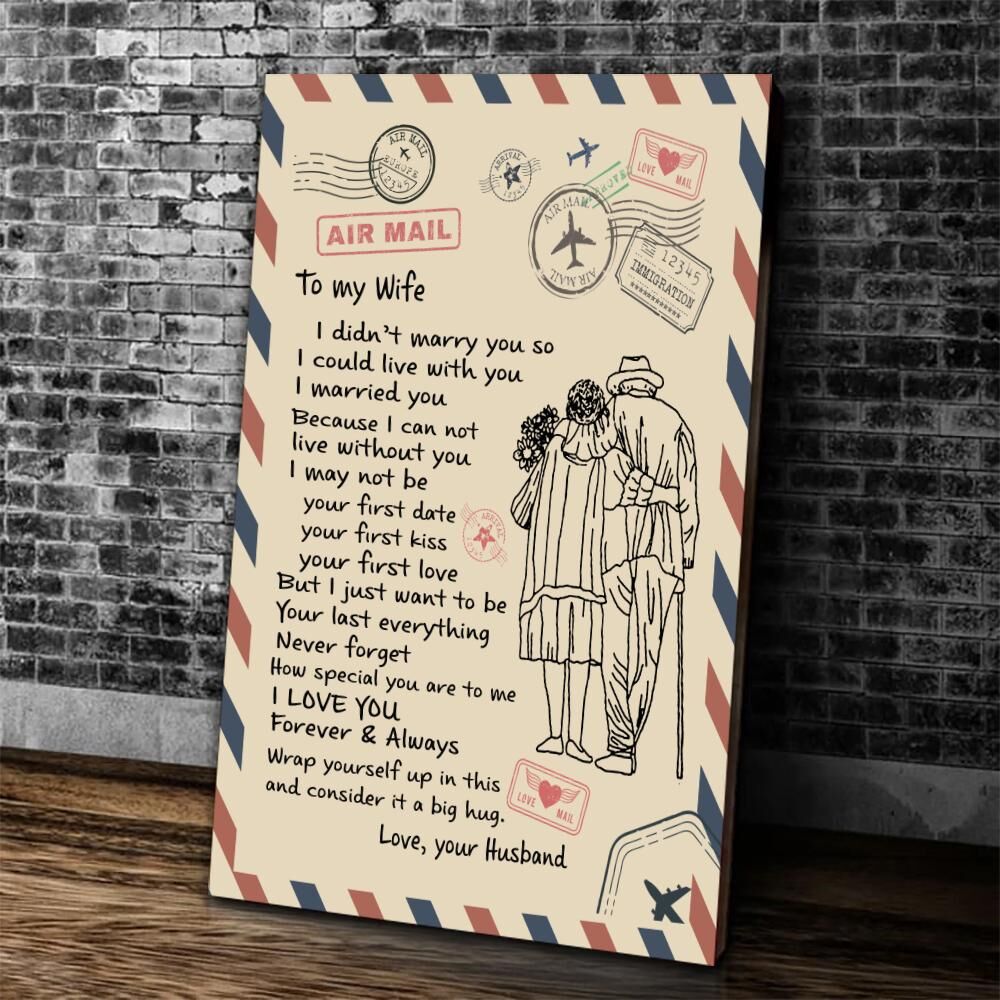 AIR MAIL
EUROPE
12345
ARRIVAL
12345
LOVE MAIL
AIR MAIL
AIR MAIL
AIR MAIL
12345
IMMIGRATION
To my Wife
I didn't marry you so
I could live with you
I married you
Because I can not
live without you
I may not be
your first date
your first kiss
your first love
ARRIVAL
But I just want to be
Your last everything
Never forget
How special you are to me
I LOVE YOU
Forever & Always
Wrap yourself up in this
and consider it a big hug.
LOVE MAIL
Love, your Husband